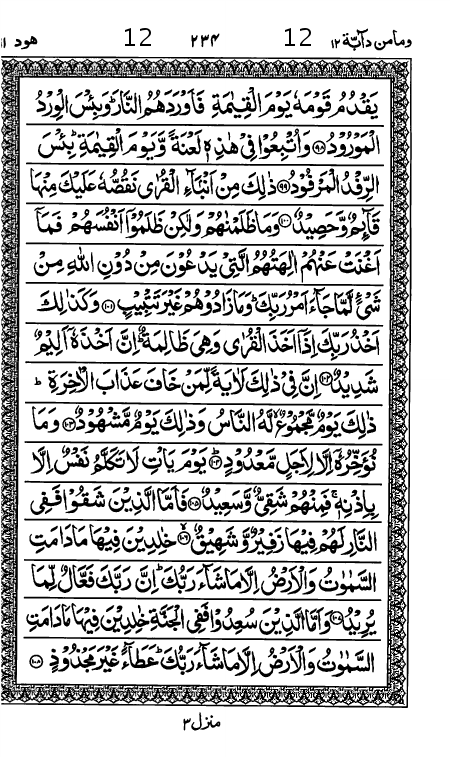 وما من دآبة ١٢ 12 ٢٣٤ 12 هود ١١
يَقْدُمُ قَوْمَهٗ يَوْمَ الْقِيٰمَةِ فَاَوْرَدَهُمُ النَّارَ ؕ وَبِئْسَ الْوِرْدُ
الْمَوْرُوْدُ ﴿۹۸﴾ وَاُتْبِعُوْا فِیْ هٰذِهٖ لَعْنَةً وَّيَوْمَ الْقِيٰمَةِ ؕ بِئْسَ
الرِّفْدُ الْمَرْفُوْدُ ﴿۹۹﴾ ذٰلِكَ مِنْ اَنْۢبَآءِ الْقُرٰى نَقُصُّهٗ عَلَيْكَ مِنْهَا
قَآئِمٌ وَّحَصِيْدٌ ﴿۱۰۰﴾ وَمَا ظَلَمْنٰهُمْ وَلٰكِنْ ظَلَمُوْۤا اَنْفُسَهُمْ فَمَاۤ
اَغْنَتْ عَنْهُمْ اٰلِهَتُهُمُ الَّتِیْ يَدْعُوْنَ مِنْ دُوْنِ اللّٰهِ مِنْ
شَیْءٍ لَّمَّا جَآءَ اَمْرُ رَبِّكَ ؕ وَمَا زَادُوْهُمْ غَيْرَ تَتْبِيْبٍ ﴿۱۰۱﴾ وَكَذٰلِكَ
اَخْذُ رَبِّكَ اِذَاۤ اَخَذَ الْقُرٰى وَهِیَ ظَالِمَةٌ ؕ اِنَّ اَخْذَهٗۤ اَلِيْمٌ
شَدِيْدٌ ﴿۱۰۲﴾ اِنَّ فِیْ ذٰلِكَ لَاٰيَةً لِّمَنْ خَافَ عَذَابَ الْاٰخِرَةِ ؕ
ذٰلِكَ يَوْمٌ مَّجْمُوْعٌ ۙ لَّهُ النَّاسُ وَذٰلِكَ يَوْمٌ مَّشْهُوْدٌ ﴿۱۰۳﴾ وَمَا
نُؤَخِّرُهٗۤ اِلَّا لِاَجَلٍ مَّعْدُوْدٍ ؕ ﴿۱۰۴﴾ يَوْمَ يَاْتِ لَا تَكَلَّمُ نَفْسٌ اِلَّا
بِاِذْنِهٖ ۚ فَمِنْهُمْ شَقِیٌّ وَّسَعِيْدٌ ﴿۱۰۵﴾ فَاَمَّا الَّذِيْنَ شَقُوْا فَفِی
النَّارِ لَهُمْ فِيْهَا زَفِيْرٌ وَّشَهِيْقٌ ۙ ﴿۱۰۶﴾ خٰلِدِيْنَ فِيْهَا مَا دَامَتِ
السَّمٰوٰتُ وَالْاَرْضُ اِلَّا مَا شَآءَ رَبُّكَ ؕ اِنَّ رَبَّكَ فَعَّالٌ لِّمَا
يُرِيْدُ ﴿۱۰۷﴾ وَاَمَّا الَّذِيْنَ سُعِدُوْا فَفِی الْجَنَّةِ خٰلِدِيْنَ فِيْهَا مَا دَامَتِ
السَّمٰوٰتُ وَالْاَرْضُ اِلَّا مَا شَآءَ رَبُّكَ ؕ عَطَآءً غَيْرَ مَجْذُوْذٍ ﴿۱۰۸﴾
منزل ۳